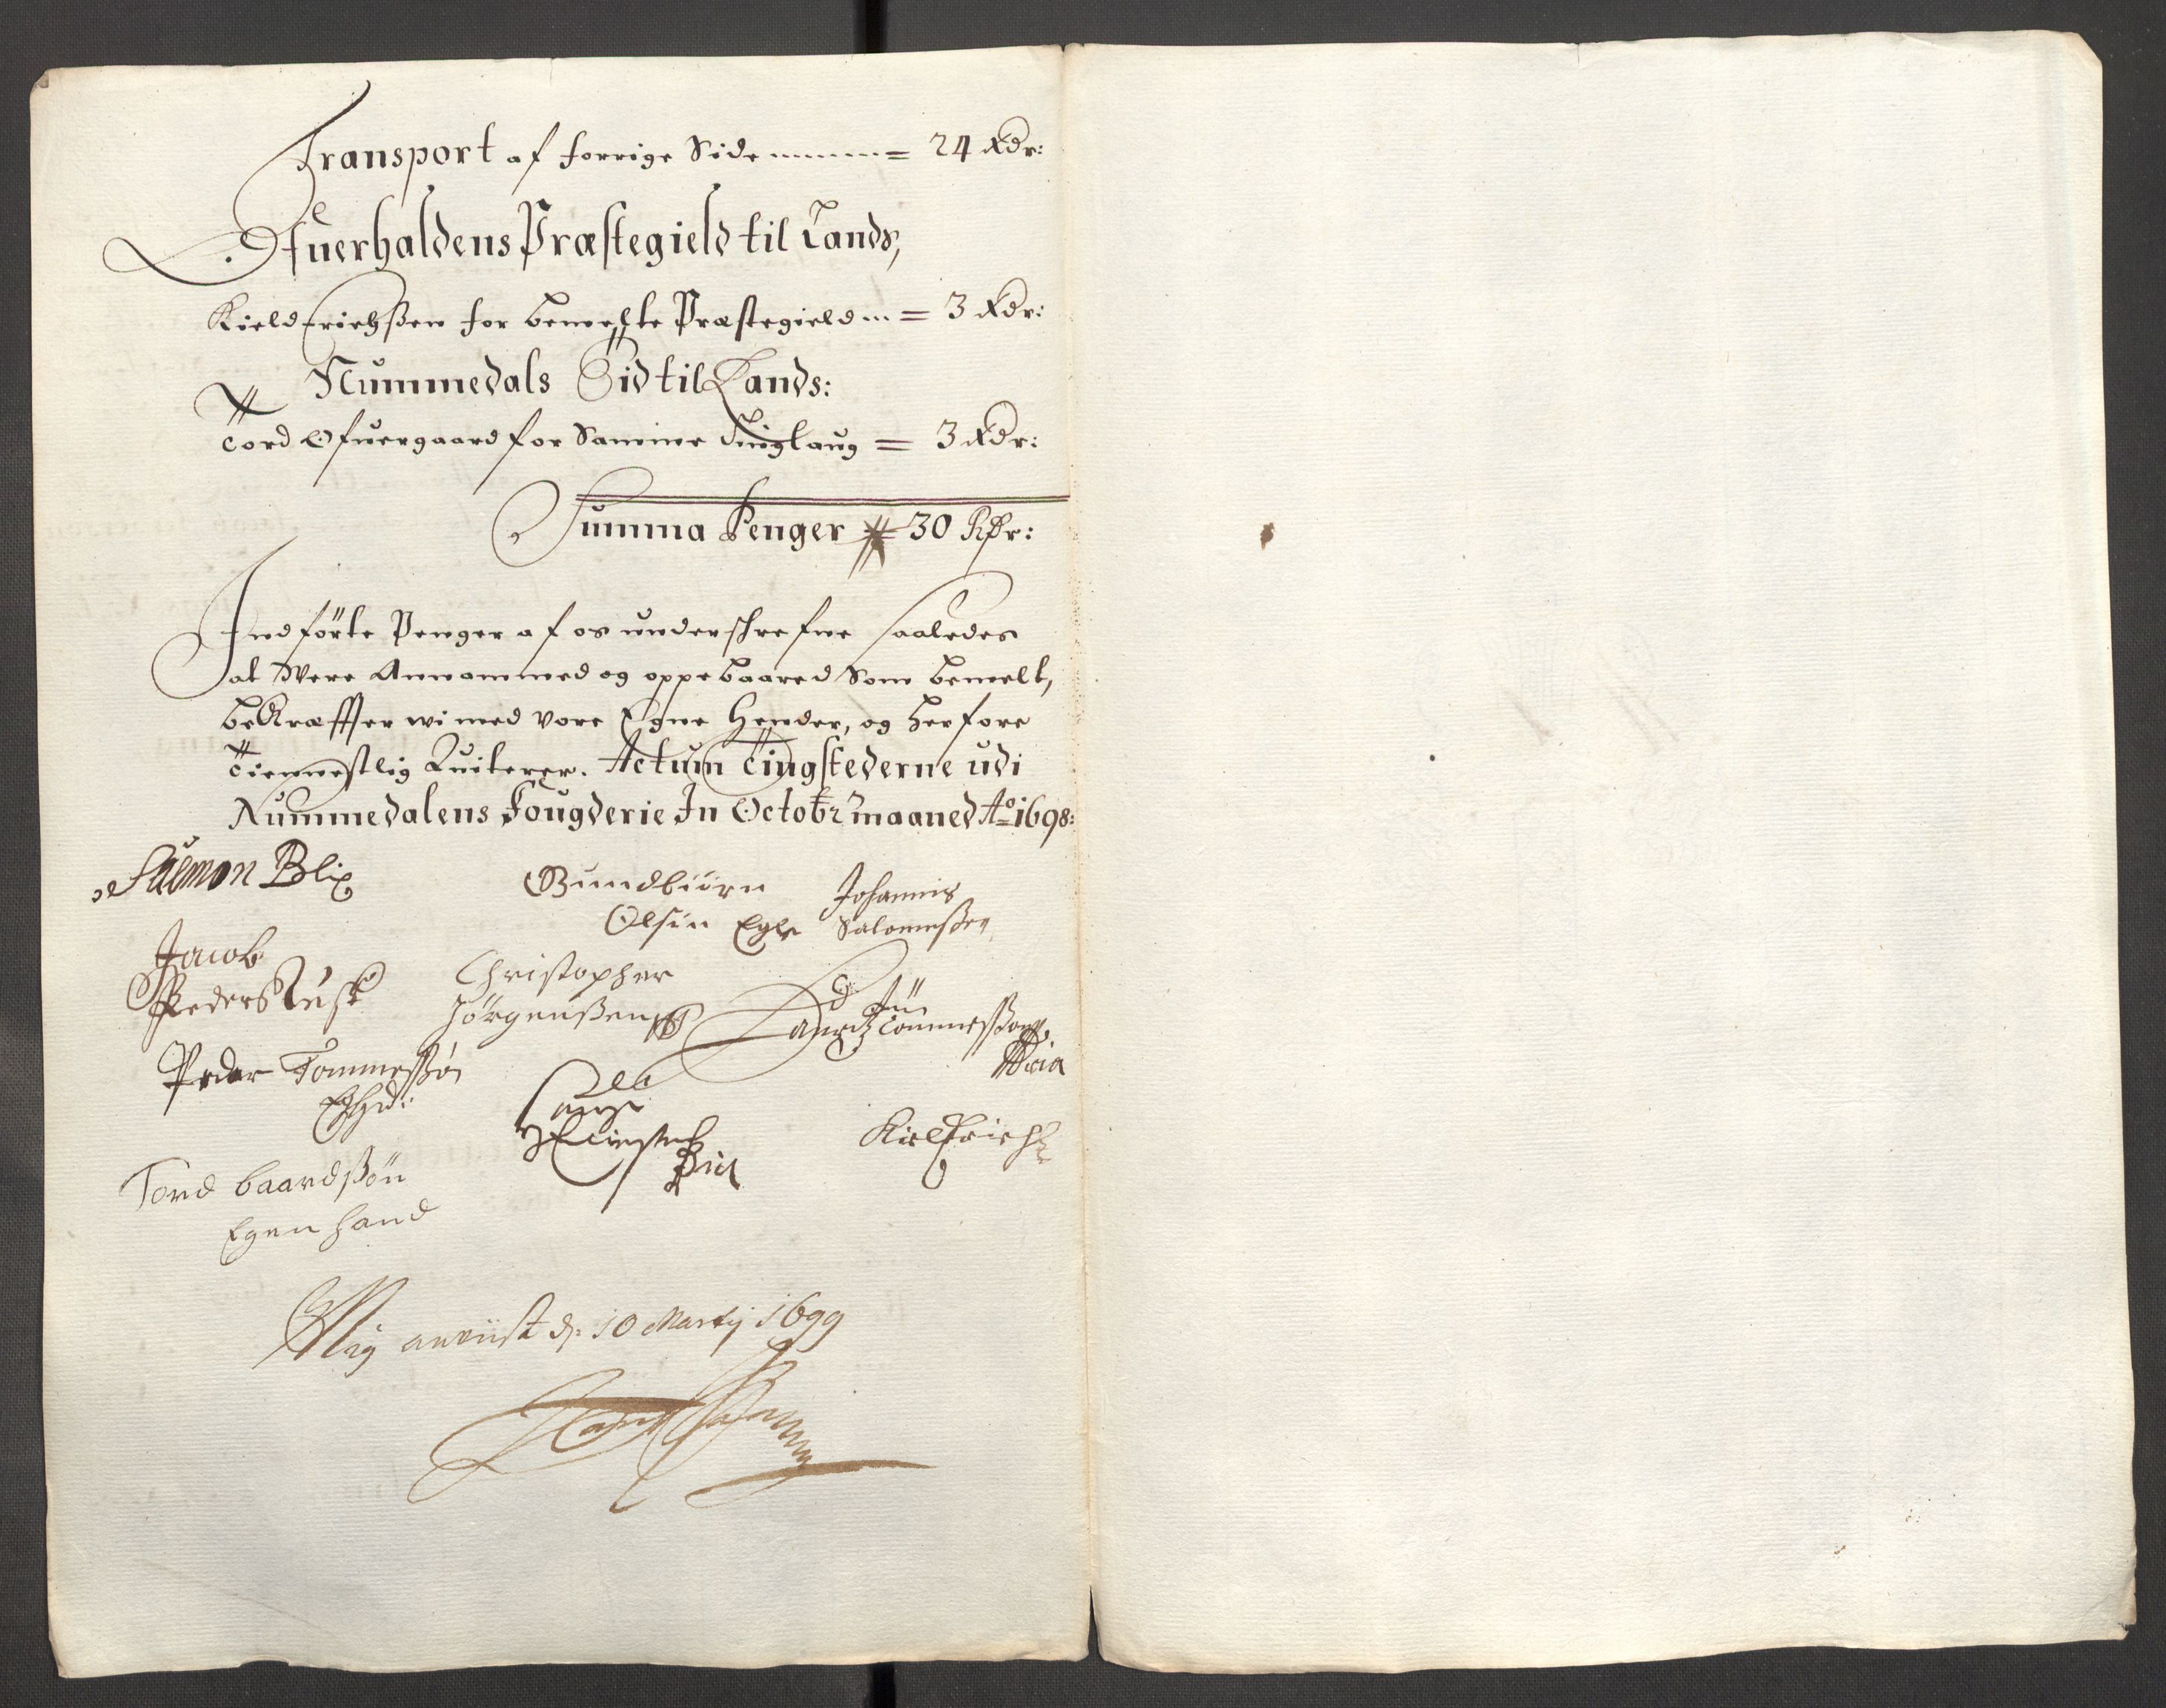 Transport af forrige Side = 24 Rdr:
Ofuerhaldens Præstegield til Lands,
Kield Erichsen for bemelte Præstegield = 3 Rdr:
Nummedals Eid til Lands:
Tord Ofuergaard for Samme Tinglaug = 3 Rdr:
Summa Penger 30 Rdr:
Indförte Penger af os underschrefne saaledes
at Were Annammed og oppebaared Som bemelt,
bekræffter wi med vore Egne Hender, og herfore
Tiennestlig Quiterer. Actum Tingstederne udi
Nummedalens Fougderie In Octobr maaned Ao 1698:
Salmon Blix
Gundbiörn Johannis
Olsen Egh Salomonsen
Jacob Christopher
Peders Rusk Jörgensen
Lauritz Tommesson
Peder Tommessøn
Kield Erichs
Tord baardssön
Egen hand
Mig anviist d. 10 Martij 1699